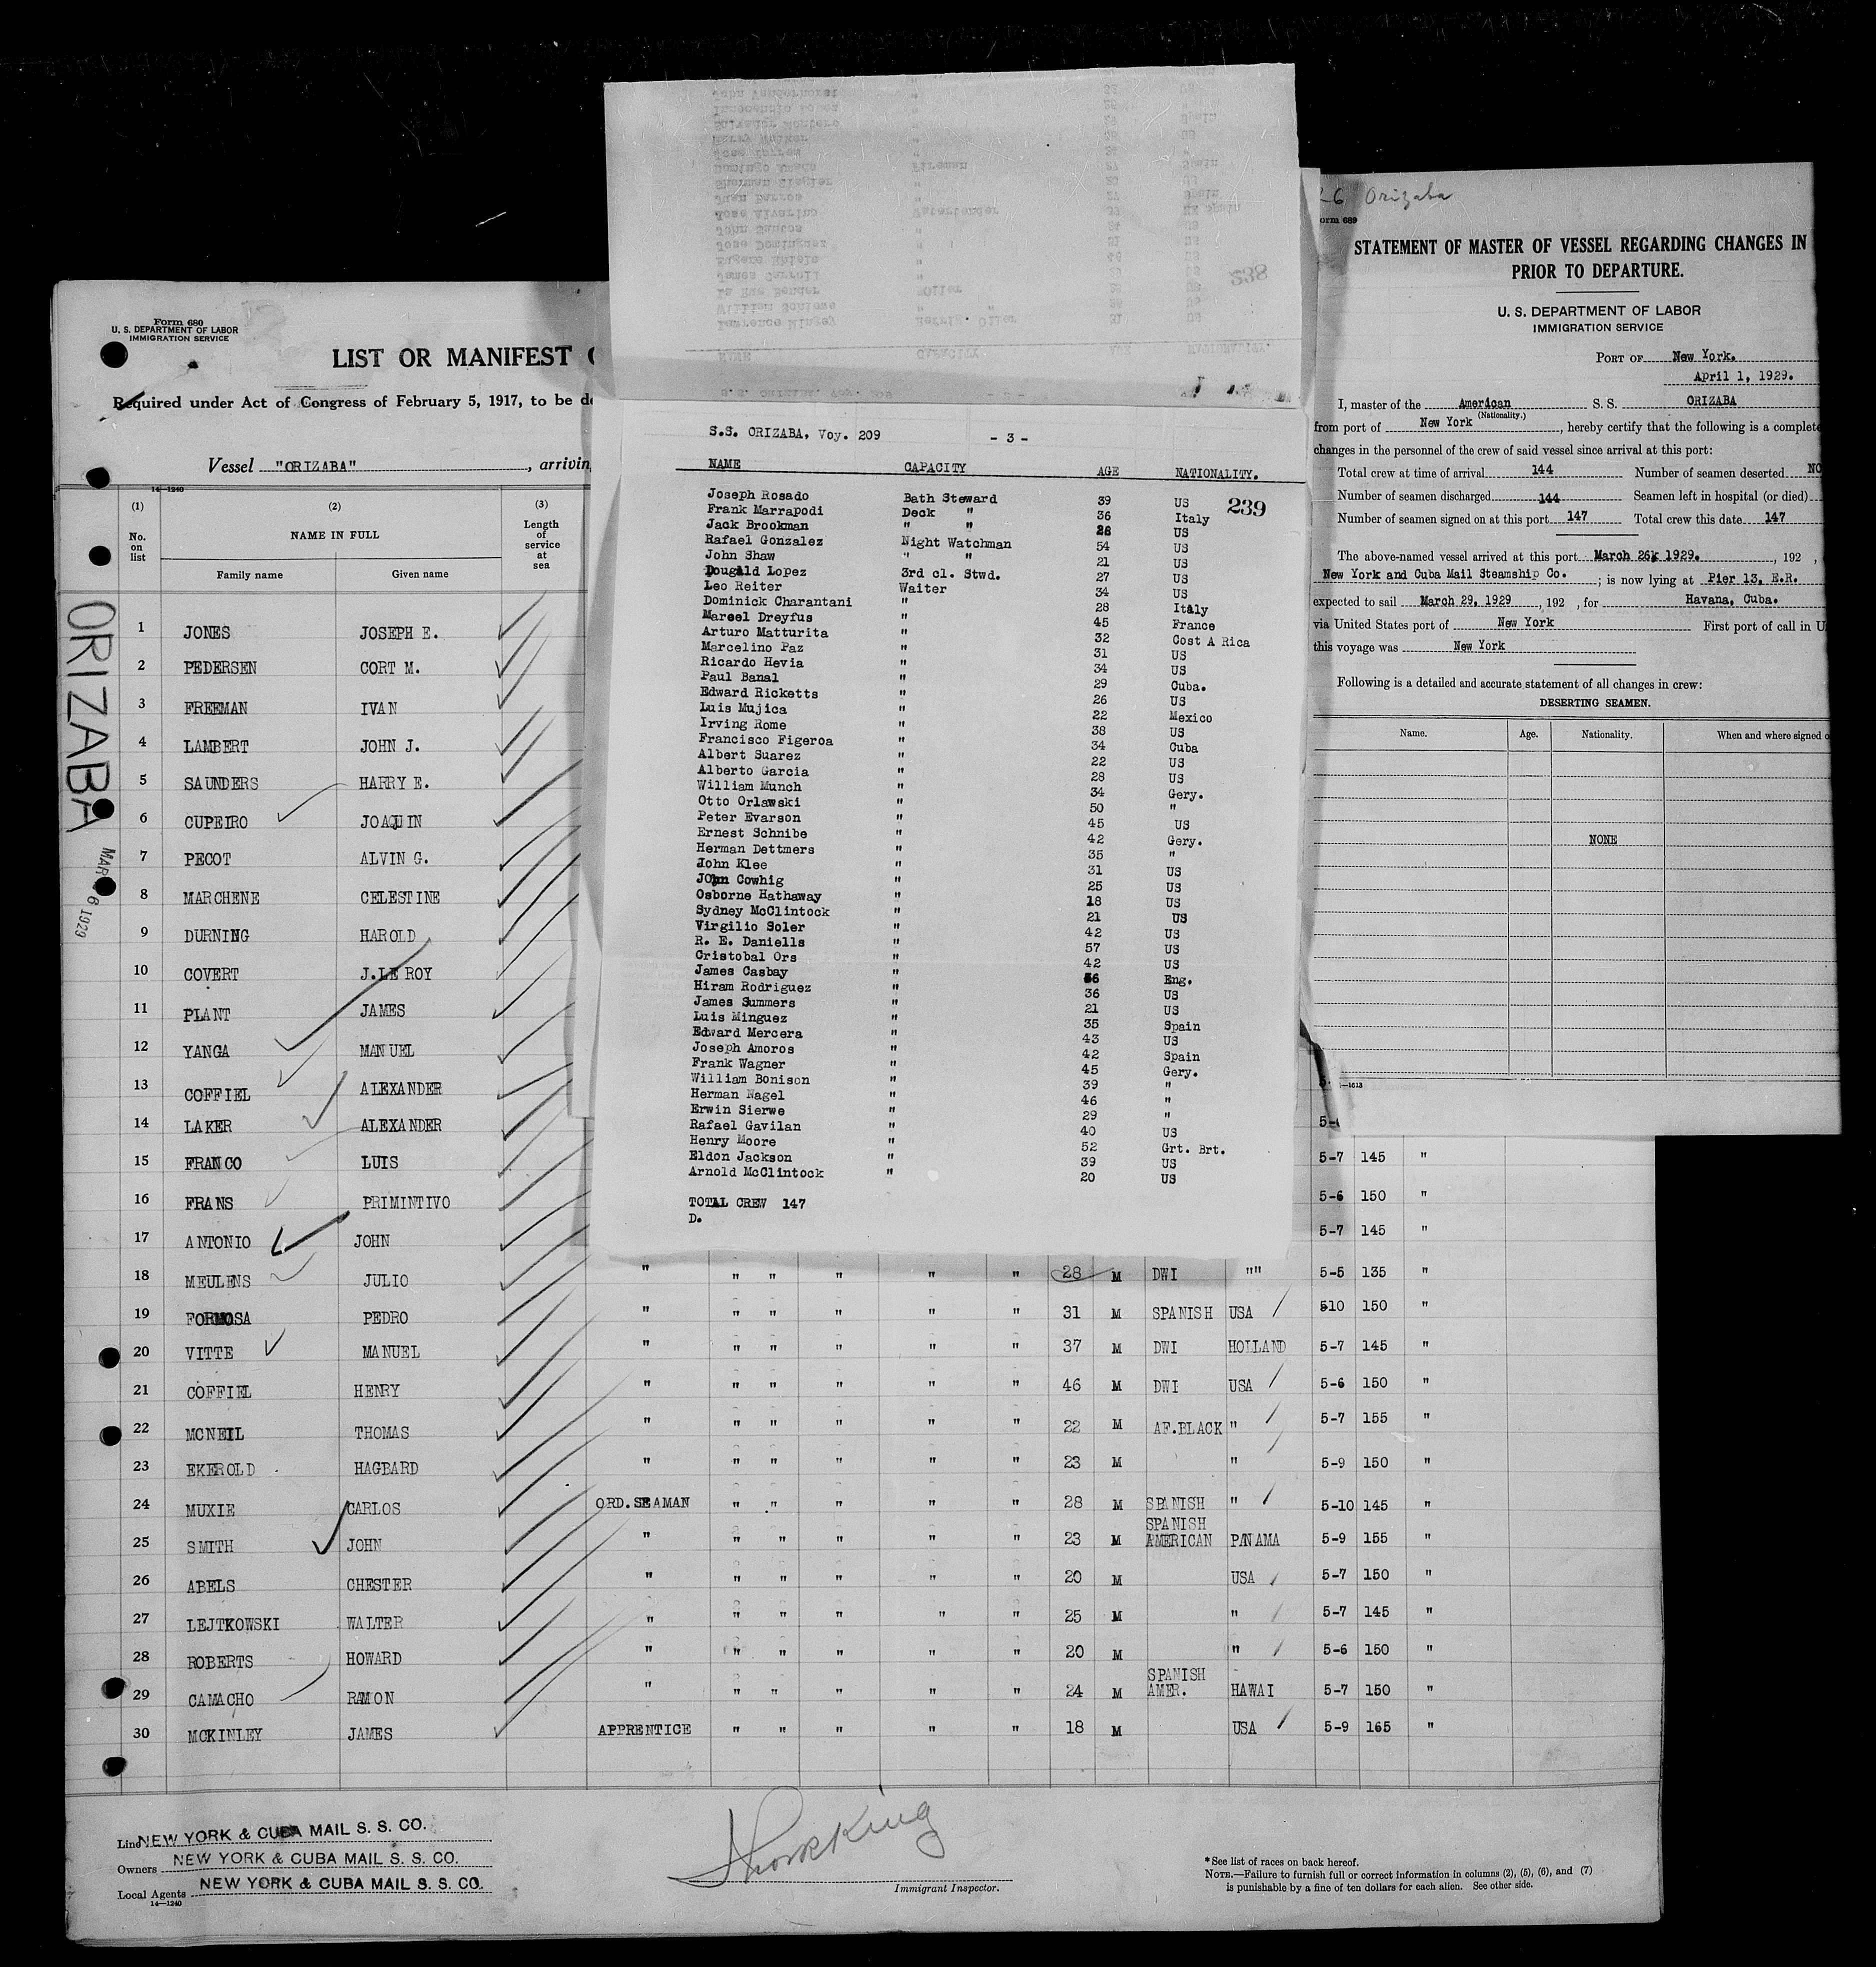 Form 680
U. S. DEPARTMENT OF LABOR
IMMIGRATION SERVICE
LIST OR MANIFEST
Required under Act of Congress of February 5, 1917, to be
Vessel "ORIZABA" , arrivin
14—1240
(1) (2) (3)
No. on list NAME IN FULL Length of service at sea
Family name Given name
ORIZABA
MAR 6 1929
1 JONES JOSEPH E.
2 PEDERSEN CORT M.
3 FREEMAN IVAN
4 LAMBERT JOHN J.
5 SAUNDERS HARRY E.
6 CUPEIRO JOAQUIN
7 PECOT ALVIN G.
8 MARCHENE CELESTINE
9 DURNING HAROLD
10 COVERT J.LE ROY
11 PLANT JAMES
12 YANGA MANUEL
13 COFFIEL ALEXANDER
14 LAKER ALEXANDER
15 FRANCO LUIS 5-7 145 "
16 FRANS PRIMINTIVO 5-6 150 "
17 ANTONIO JOHN 5-7 145 "
18 MEULENS JULIO " " " " " " 28 M DWI "" 5-5 135 "
19 FORMOSA PEDRO " " " " " " 31 M SPANISH USA 510 150 "
20 VITTE MANUEL " " " " " " 37 M DWI HOLLAND 5-7 145 "
21 COFFIEL HENRY " " " " " " 46 M DWI USA 5-6 150 "
22 MCNEIL THOMAS " " " " " " 22 M AF.BLACK " 5-7 155 "
23 EKEROLD HAGBARD " " " " " " 23 M " 5-9 150 "
24 MUXIE CARLOS ORD.SEAMAN " " " " " 28 M SPANISH " 5-10 145 "
25 SMITH JOHN " " " " " " 23 M SPANISH AMERICAN PANAMA 5-9 155 "
26 ABELS CHESTER " " " " " " 20 M USA 5-7 150 "
27 LEJTKOWSKI WALTER " " " " " " 25 M " 5-7 145 "
28 ROBERTS HOWARD " " " " " " 20 M " 5-6 150 "
29 CAMACHO RAMON " " " " " " 24 M SPANISH AMER. HAWAI 5-7 150 "
30 MCKINLEY JAMES APPRENTICE " " " " " 18 M USA 5-9 165 "
Line NEW YORK & CUBA MAIL S. S. CO.
Owners NEW YORK & CUBA MAIL S. S. CO.
Local Agents NEW YORK & CUBA MAIL S. S. CO.
14—1240
Immigrant Inspector.
* See list of races on back hereof.
NOTE.—Failure to furnish full or correct information in columns (2), (5), (6), and (7)
is punishable by a fine of ten dollars for each alien. See other side.
238
S.S. ORIZABA, Voy. 209 - 3 -
NAME CAPACITY AGE NATIONALITY.
239
Joseph Rosado Bath Steward 39 US
Frank Marrapodi Deck " 36 Italy
Jack Brookman " " 28 US
Rafael Gonzalez Night Watchman 54 US
John Shaw " " 21 US
Dougald Lopez 3rd cl. Stwd. 27 US
Leo Reiter Waiter 34 US
Dominick Charantani " 28 Italy
Marcel Dreyfus " 45 France
Arturo Matturita " 32 Cost A Rica
Marcelino Paz " 31 US
Ricardo Hevia " 34 US
Paul Banal " 29 Cuba.
Edward Ricketts " 26 US
Luis Mujica " 22 Mexico
Irving Rome " 38 US
Francisco Figeroa " 34 Cuba
Albert Suarez " 22 US
Alberto Garcia " 28 US
William Munch " 34 Gery.
Otto Orlawski " 50 "
Peter Evarson " 45 US
Ernest Schnibe " 42 Gery.
Herman Dettmers " 35 "
John Klee " 31 US
John Cowhig " 25 US
Osborne Hathaway " 18 US
Sydney McClintock " 21 US
Virgilio Soler " 42 US
R. E. Daniells " 57 US
Cristobal Ors " 42 US
James Casbay " 56 Eng.
Hiram Rodriguez " 36 US
James Summers " 21 US
Luis Minguez " 35 Spain
Edward Mercera " 43 US
Joseph Amoros " 42 Spain
Frank Wagner " 45 Gery.
William Bonison " 39 "
Herman Nagel " 46 "
Erwin Sierwe " 29 "
Rafael Gavilan " 40 US
Henry Moore " 52 Grt. Brt.
Eldon Jackson " 39 US
Arnold McClintock " 20 US
TOTAL CREW 147
D.
26 Orizaba
orm 689
STATEMENT OF MASTER OF VESSEL REGARDING CHANGES IN
PRIOR TO DEPARTURE.
U. S. DEPARTMENT OF LABOR
IMMIGRATION SERVICE
PORT OF New York.
April 1, 1929.
I, master of the American S. S. ORIZABA
(Nationality.)
from port of New York , hereby certify that the following is a complete
changes in the personnel of the crew of said vessel since arrival at this port:
Total crew at time of arrival 144 Number of seamen deserted NO
Number of seamen discharged 144 Seamen left in hospital (or died)
Number of seamen signed on at this port 147 Total crew this date 147
The above-named vessel arrived at this port March 26, 1929. , 192 ,
New York and Cuba Mail Steamship Co. ; is now lying at Pier 13, E.R.
expected to sail March 29, 1929 , 192 , for Havana, Cuba.
via United States port of New York First port of call in U
this voyage was New York
Following is a detailed and accurate statement of all changes in crew:
DESERTING SEAMEN.
Name. Age. Nationality. When and where signed o
NONE